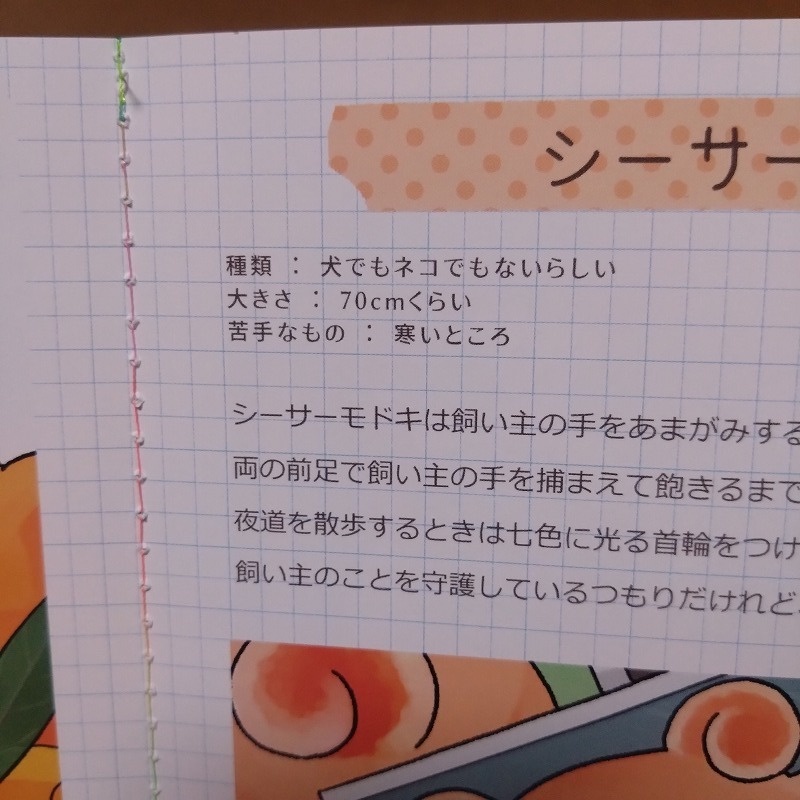 シーサー
種類 ： 犬でもネコでもないらしい
大きさ ： 70cmくらい
苦手なもの ： 寒いところ
シーサーモドキは飼い主の手をあまがみする
両の前足で飼い主の手を捕まえて飽きるまで
夜道を散歩するときは七色に光る首輪をつけ
飼い主のことを守護しているつもりだけれど